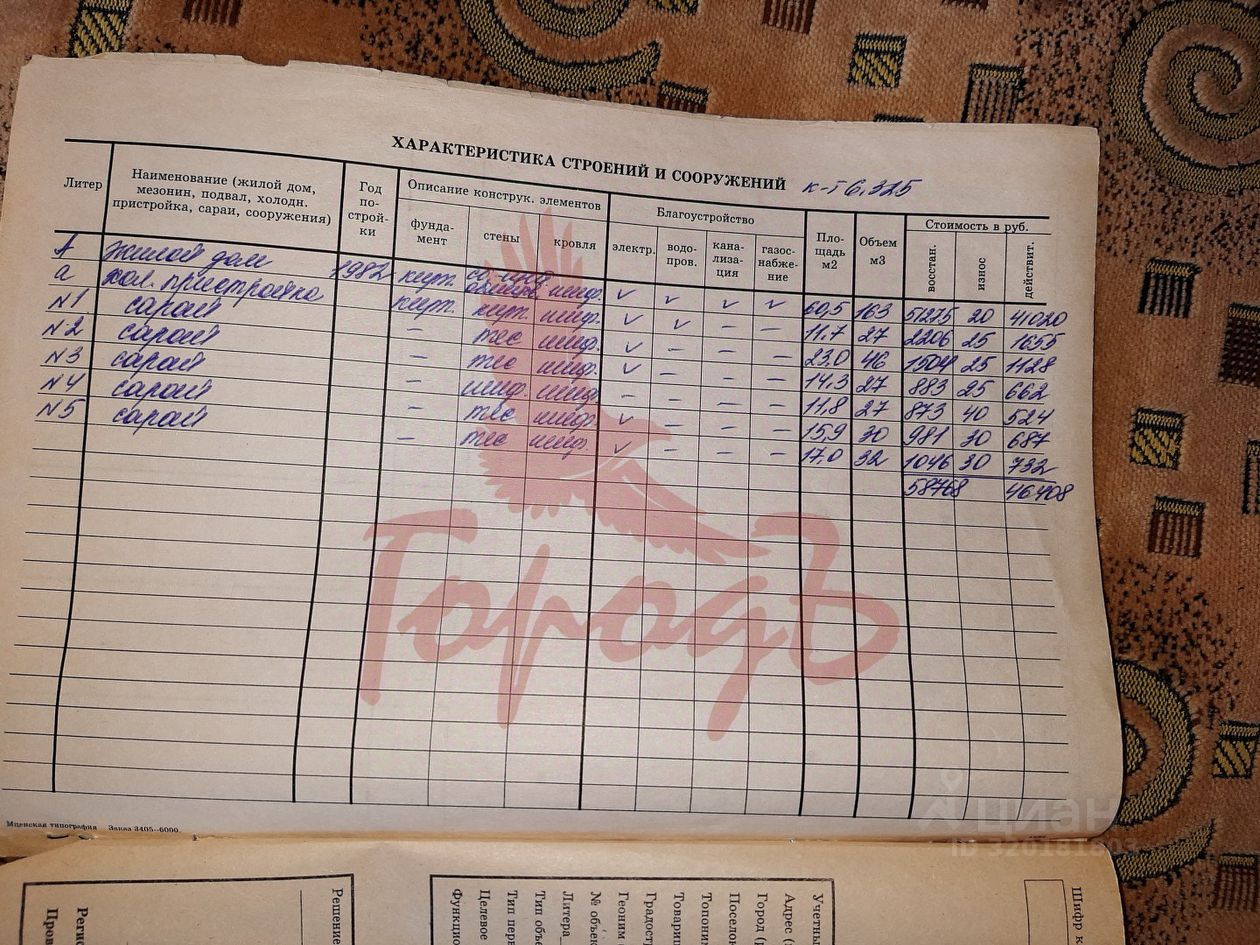 ХАРАКТЕРИСТИКА СТРОЕНИЙ И СООРУЖЕНИЙ к-т 6,325
Литер
Наименование (жилой дом, мезонин, подвал, холодн. пристройка, сараи, сооружения)
Год по-стройки
Описание конструк. элементов
фунда-мент
стены
кровля
Благоустройство
электр.
водо-пров.
кана-лиза-ция
газос-набже-ние
Пло-щадь м2
Объем м3
Стоимость в руб.
восстан.
износ
действит.
А жилой дом 1982 кирп. шиф. ✓ ✓ ✓ ✓ 60,5 163 51275 20 41020
а хол. пристройка кирп. кирп. шиф. ✓ ✓ – – 11,7 27 2206 25 1655
N1 сарай – тес шиф. ✓ – – – 23,0 46 1504 25 1128
N2 сарай – тес шиф. ✓ – – – 14,3 27 883 25 662
N3 сарай – шиф. шиф. – – – – 11,8 27 873 40 524
N4 сарай – тес шиф. ✓ – – – 15,9 30 981 30 687
N5 сарай – тес шиф. ✓ – – – 17,0 32 1046 30 732
58768 46408
ГородЪ
Мценская типография Заказ 3405--6000.
циан
Решение
Функцио
Целевое
Тип перв
Тип объе
Литера
№ объек
Геоним
Градостр
Товарищ
Топоним
Поселон
Город (
Адрес (
Учетны
Шифр к